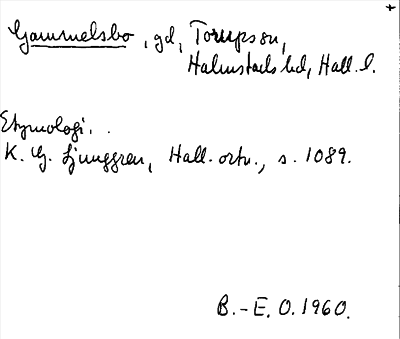 Gammelsbo, gd, Torups sn,
Halmstads hd, Hall. l.
Etymologi.
K. G. Ljunggren, Hall. ortn., s. 1089.
B.-E. O. 1960.